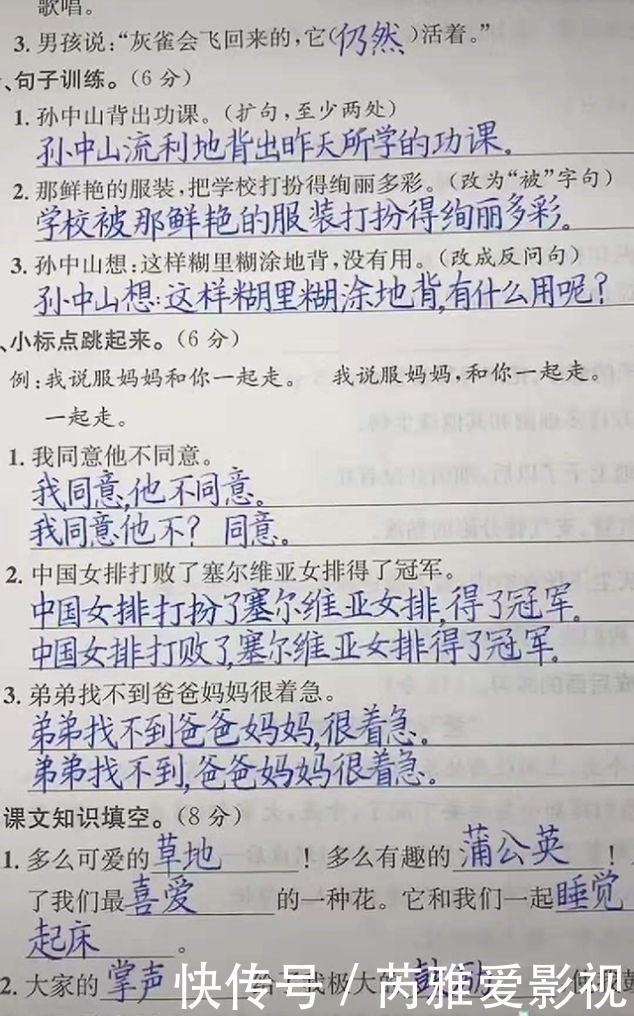 歌唱。
3. 男孩说：“灰雀会飞回来的，它（仍然）活着。”
、句子训练。（6 分）
1. 孙中山背出功课。（扩句，至少两处）
孙中山流利地背出昨天所学的功课。
2. 那鲜艳的服装，把学校打扮得绚丽多彩。（改为“被”字句）
学校被那鲜艳的服装打扮得绚丽多彩。
3. 孙中山想：这样糊里糊涂地背，没有用。（改成反问句）
孙中山想：这样糊里糊涂地背，有什么用呢？
、小标点跳起来。（6 分）
例：我说服妈妈和你一起走。 我说服妈妈，和你一起走。
一起走。
1. 我同意他不同意。
我同意，他不同意。
我同意他不？同意。
2. 中国女排打败了塞尔维亚女排得了冠军。
中国女排打扮了塞尔维亚女排，得了冠军。
中国女排打败了，塞尔维亚女排得了冠军。
3. 弟弟找不到爸爸妈妈很着急。
弟弟找不到爸爸妈妈，很着急。
弟弟找不到，爸爸妈妈很着急。
课文知识填空。（8 分）
1. 多么可爱的草地！多么有趣的蒲公英！
了我们最喜爱的一种花。它和我们一起睡觉
起床。
2. 大家的掌声给了我极大的鼓励
快传号 / 芮雅爱影视